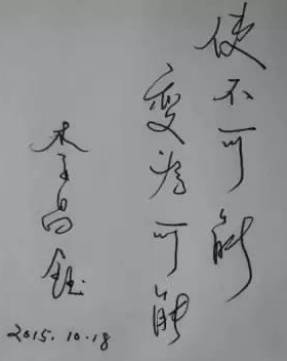 使不可能
变为可能
李昌钰
2015.10.18